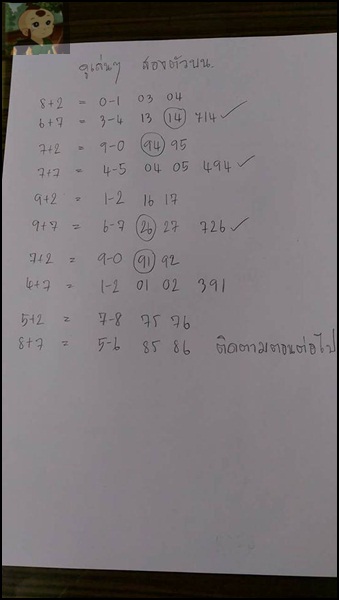 ดูเด่นๆ สองตัวบน.
8+2 = 0-1 03 04
6+7 = 3-4 13 14 714 ✓
7+2 = 9-0 94 95
7+7 = 4-5 04 05 494 ✓
9+2 = 1-2 16 17
9+7 = 6-7 26 27 726 ✓
7+2 = 9-0 91 92
4+7 = 1-2 01 02 391
5+2 = 7-8 75 76
8+7 = 5-6 85 86 ติดตามตอนต่อไป